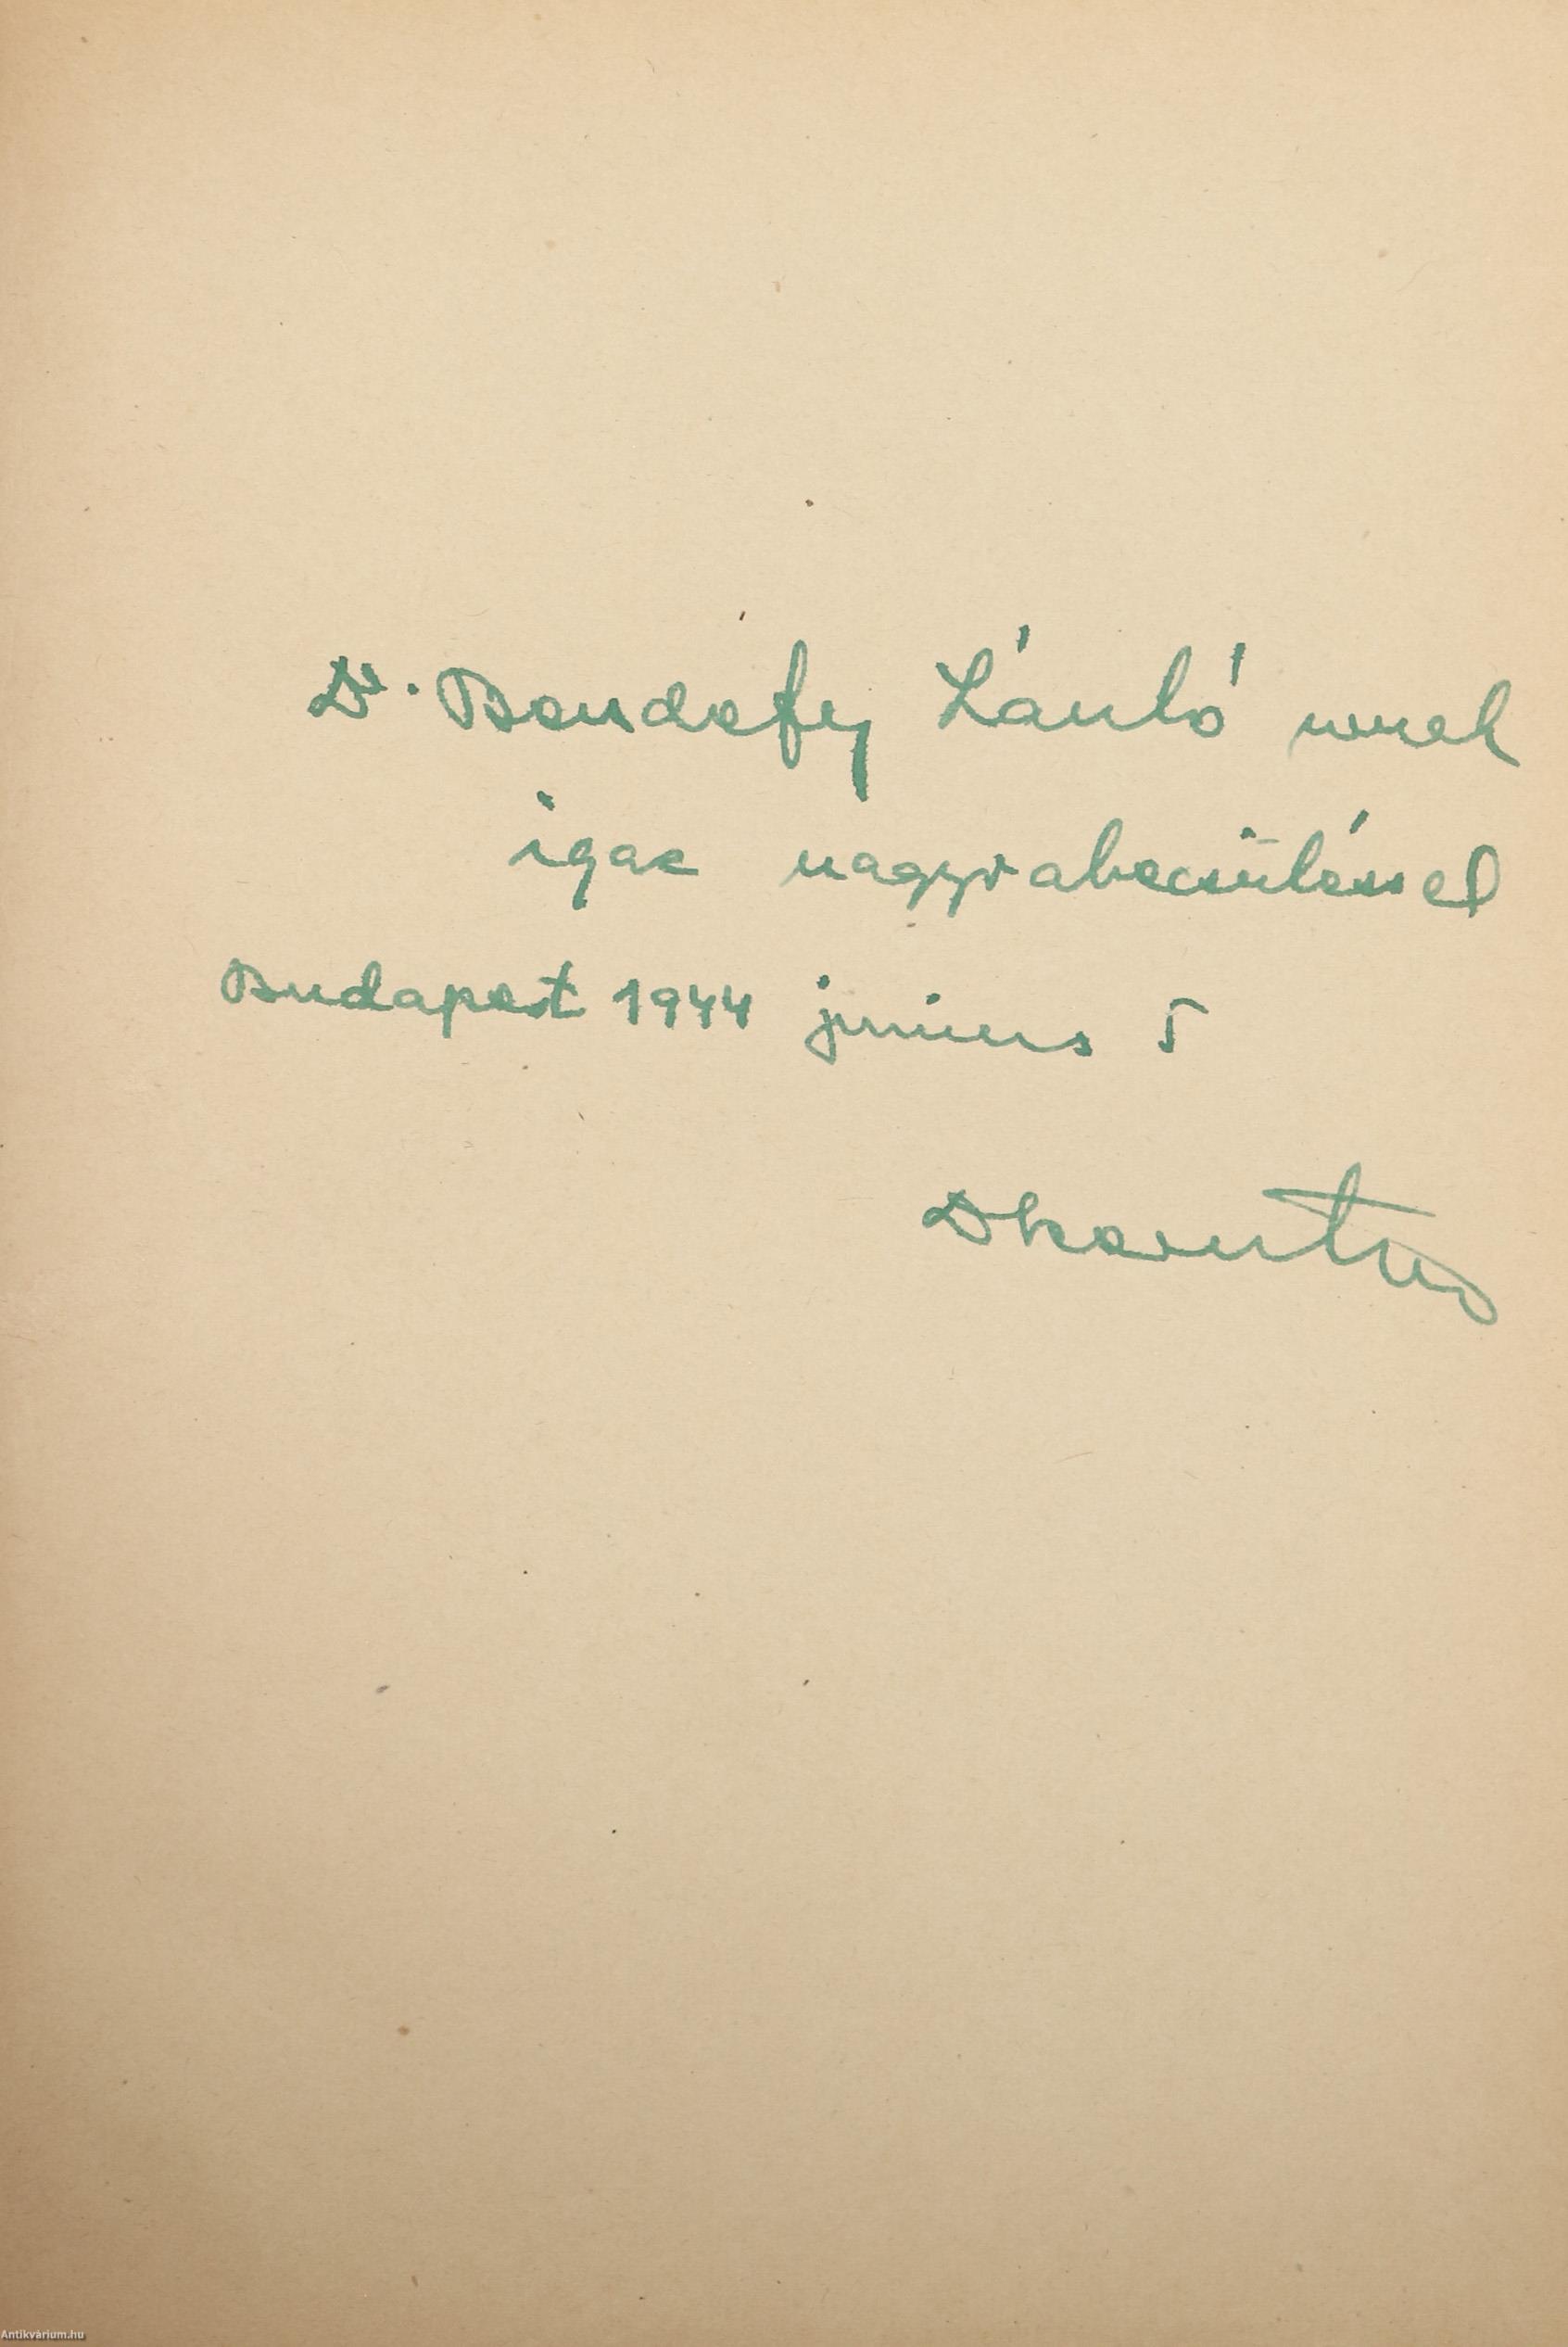 Dr. Bendefy László urnak
igaz nagyrabecsüléssel
Budapest 1944 junius 5
Antikvárium.hu